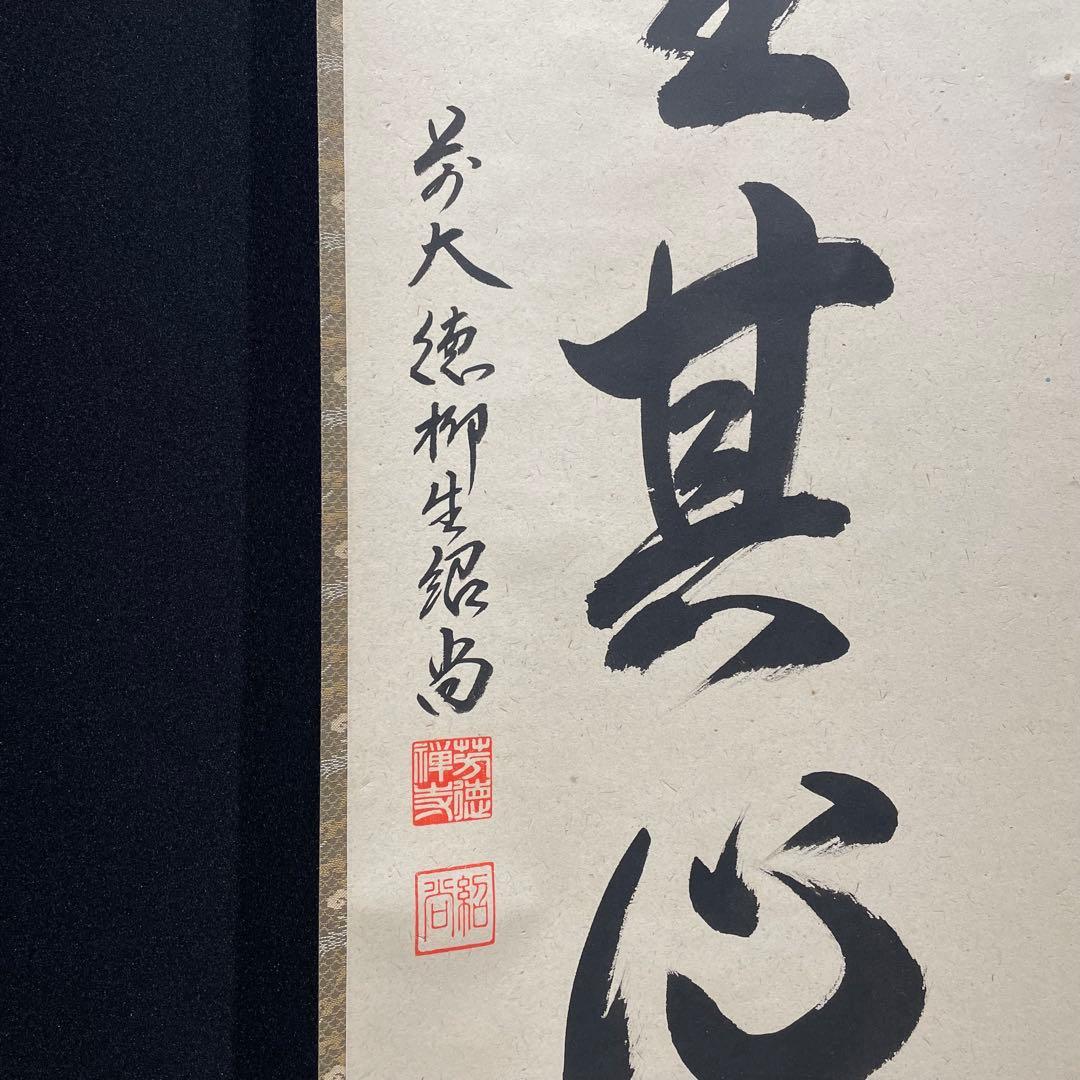 生其心
前大徳柳生紹尚
芳徳禅寺
紹尚